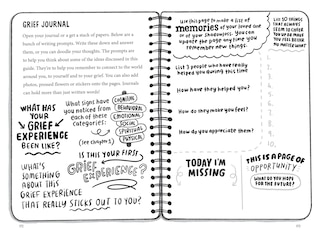 GRIEF JOURNAL
Open your journal or get a stack of papers. Below are a
bunch of writing prompts. Write these down and answer
them, or you can doodle your thoughts. The prompts are
to help you think about some of the ideas discussed in this
guide. They're to help you remember to connect to the world
around you, to yourself and to your grief. You can also add
photos, pressed flowers or stickers onto the pages. Journals
can hold more than just written words!
WHAT HAS
YOUR
GRIEF
EXPERIENCE
BEEN LIKE?
What signs have
you noticed from
each of these
categories:
(see chapter 1)
COGNITIVE
BEHAVIORAL
EMOTIONAL
SOCIAL
SPIRITUAL
PHYSICAL
IS THIS YOUR FIRST
GRIEF
EXPERIENCE?
WHAT'S
SOMETHING
ABOUT THIS
GRIEF EXPERIENCE
THAT REALLY STICKS OUT TO YOU?
Use this page to make a list of
memories of your loved one
or of your shadows. You can
update the page any time you
remember new things.
List 3 people who have really
helped you during this time
How have they helped you?
How do they make you feel?
How do you appreciate them?
LIST 10 THINGS
THAT ALWAYS
SEEM TO CHEER
YOU UP OR MAKE
YOU FEEL BETTER
NO MATTER WHAT
TODAY I'M
MISSING
THIS IS A PAGE OF
OPPORTUNITY
WHAT DO YOU HOPE
FOR THE FUTURE?